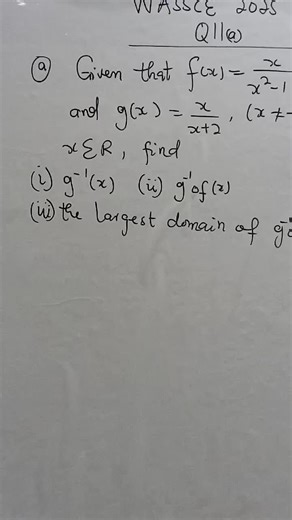 WASSCE 2025
Q11(a)
(a) Given that f(x) = x/(x²-1)
and g(x) = x/(x+2), (x ≠ -
x ∈ R, find
(i) g⁻¹(x) (ii) g⁻¹of(x)
(iii) the largest domain of g⁻¹o